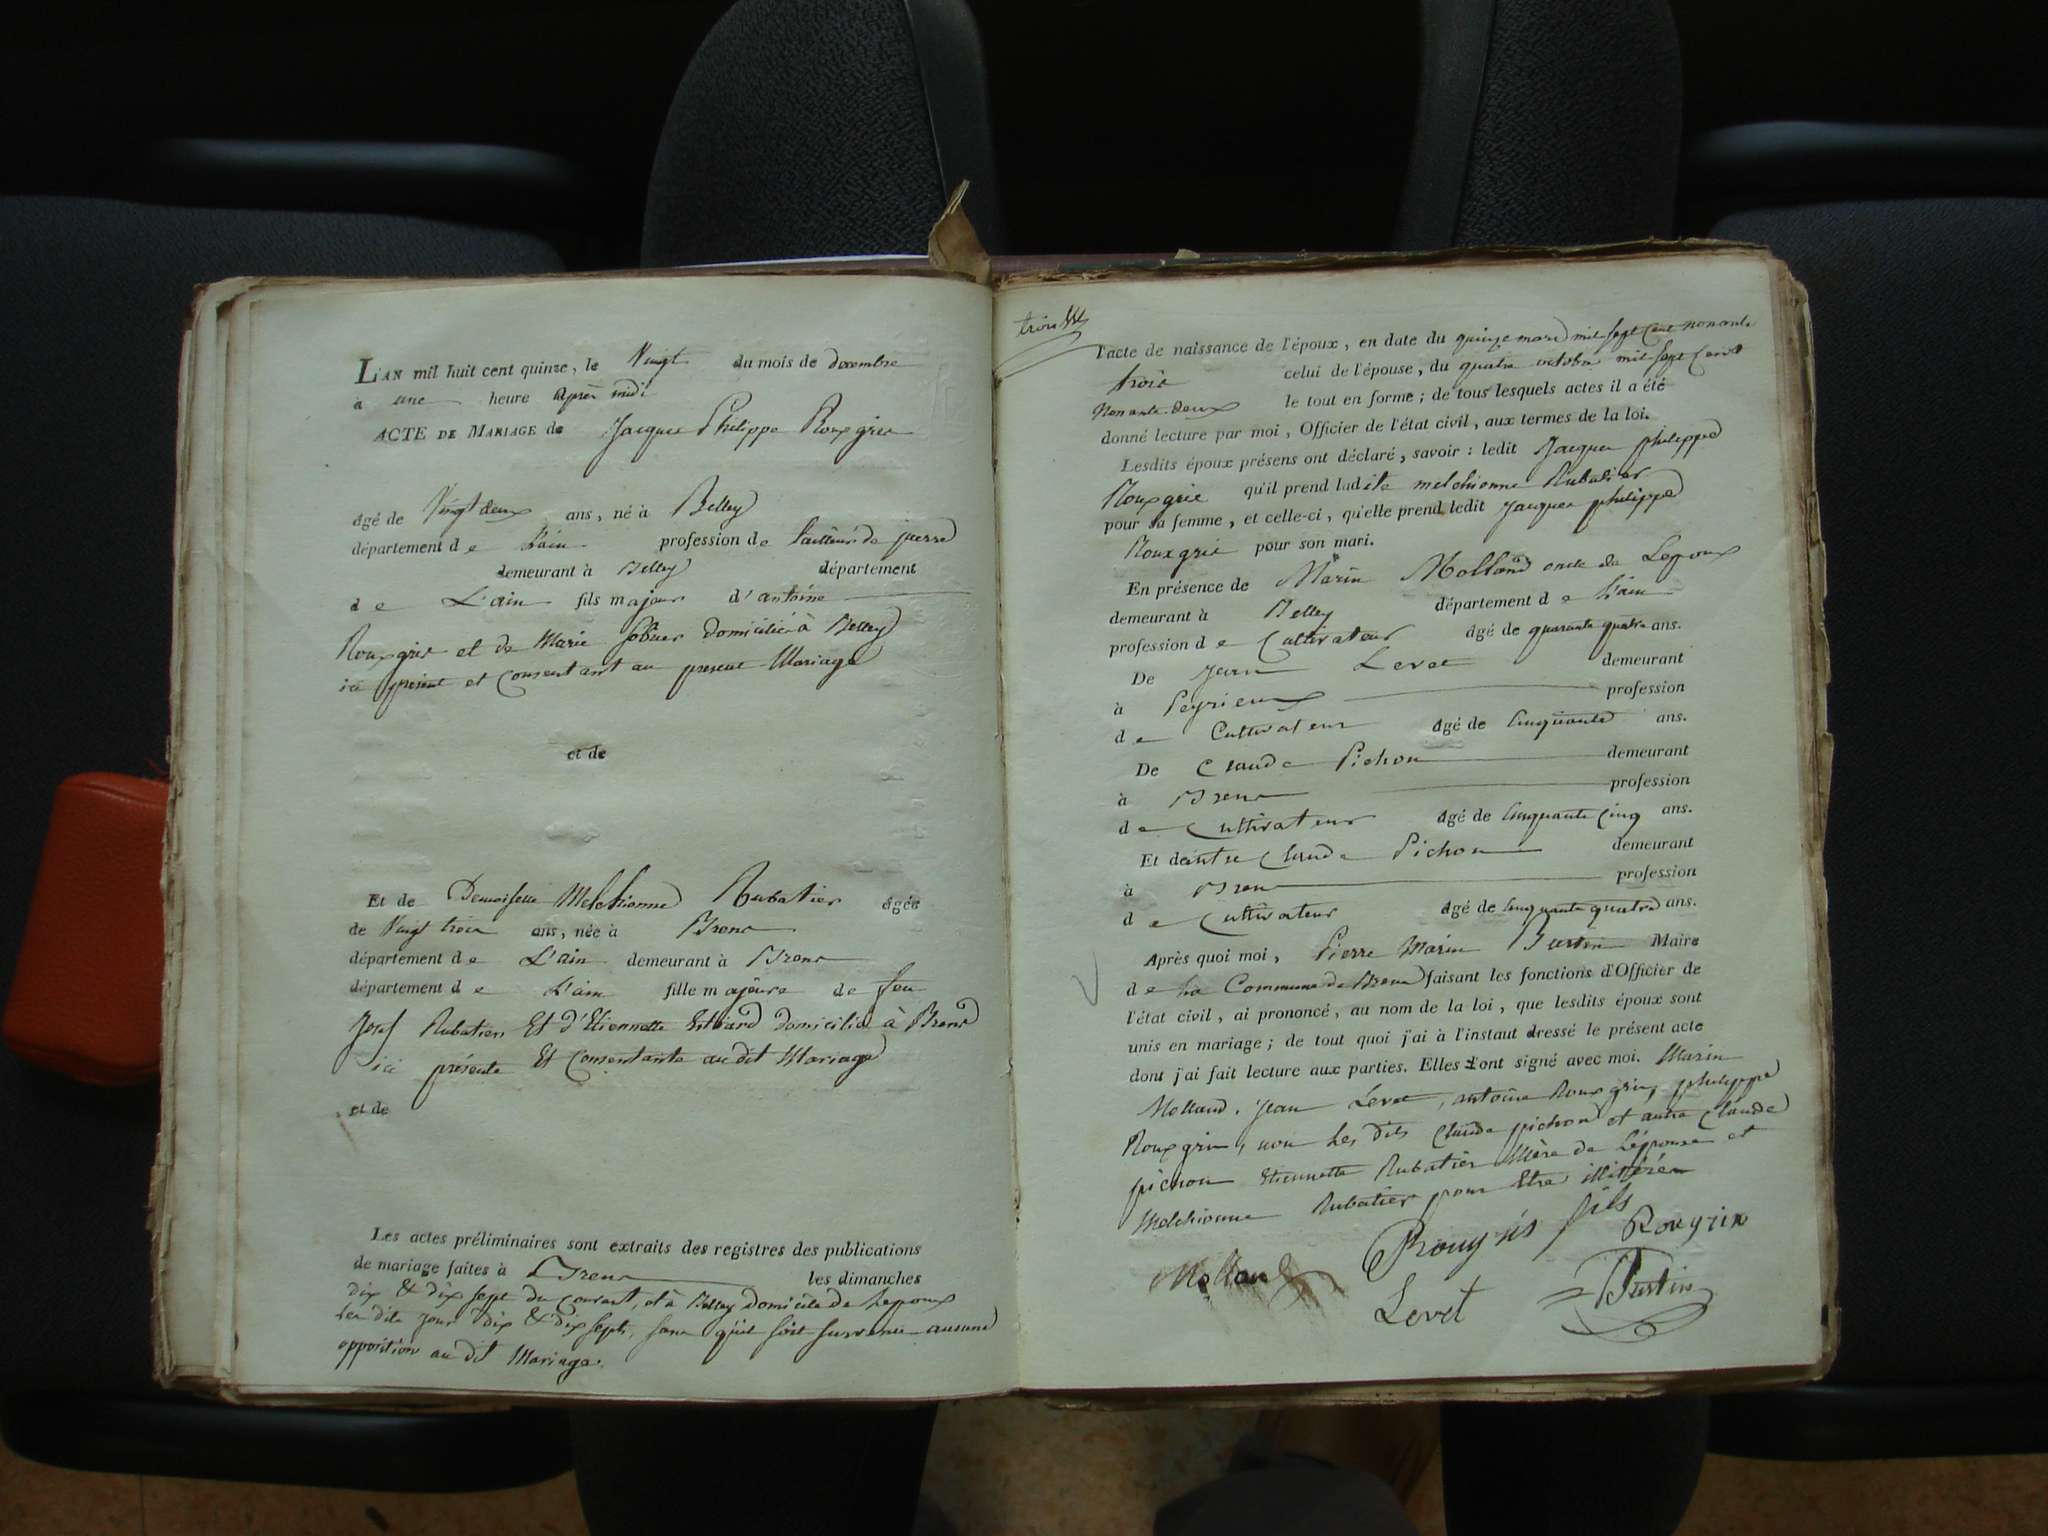 L'AN mil huit cent quinze, le Vingt du mois de decembre
à une heure après midi
ACTE DE MARIAGE de Jacques Philippe Rouxgris
âgé de Vingt deux ans, né à Belley
département de l'ain profession de tailleur de pierre
demeurant à Belley département
de L'ain fils majeur d'antoine
Rouxgris et de Marie domicilié à Belley
ici présent et Consentant au présent Mariage
et de
Et de Demoiselle Melchionne Rubatier âgée
de Vingt trois ans, née à Brens
département de L'ain demeurant à Brens
département de L'ain fille majeure de feu
Josef Rubatier Et d'Etiennette domicilié à Brens
ici présente Et Consentante au dit Mariage
et de
Les actes préliminaires sont extraits des registres des publications
de mariage faites à Brens les dimanches
dix & dix sept du Courant, et à Belley domicile de Lepoux
les dits jour dix & dix sept, sans qu'il soit survenu aucune
opposition au dit Mariage.
l'acte de naissance de l'époux, en date du quinze mars mil sept Cent nonante
trois celui de l'épouse, du quatre octobre mil sept Cent
Nonante deux le tout en forme; de tous lesquels actes il a été
donné lecture par moi, Officier de l'état civil, aux termes de la loi.
Lesdits époux présens ont déclaré, savoir: ledit Jacques philippe
Rouxgris qu'il prend ladite melchionne Rubatier
pour sa femme, et celle-ci, qu'elle prend ledit Jacques philippe
Rouxgris pour son mari.
En présence de Marin Molland oncle de Lepoux
demeurant à Belley département de l'ain
profession de Cultivateur âgé de quarante quatre ans.
De Jean Levet demeurant
à Peyrieux profession
de Cultivateur âgé de Cinquante ans.
De Claude Pichon demeurant
à Brens profession
de Cultivateur âgé de Cinquante Cinq ans.
Et de autre Claude Pichon demeurant
à Brens profession
de Cultivateur âgé de Cinquante quatre ans.
Après quoi moi, Pierre Marin Justin Maire
de La Commune de Brens faisant les fonctions d'Officier de
l'état civil, ai prononcé, au nom de la loi, que lesdits époux sont
unis en mariage; de tout quoi j'ai à l'instant dressé le présent acte
dont j'ai fait lecture aux parties. Elles l'ont signé avec moi. Marin
Molland, Jean Levet, antoine Rouxgris, philippe
Rouxgris, non les dits Claude pichon et autre Claude
pichon Etiennette Rubatier Mère de Lépouse et
Melchionne Rubatier pour Etre illitérés
Rouxgris fils Rougrin
Molland
Levet Justin